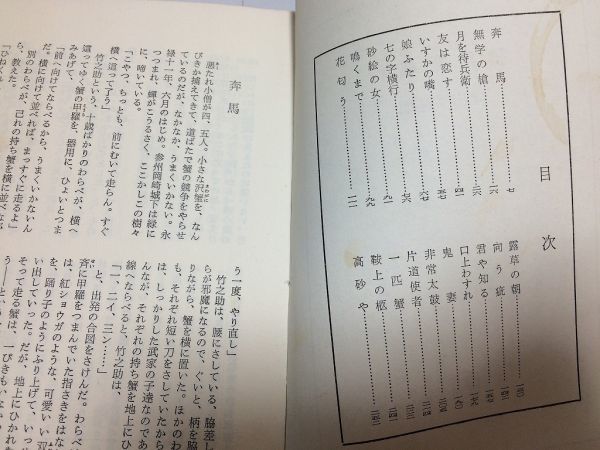 目次
奔馬 七
無学の槍
月を待兵衛
友は恋す
いすかの嘴
娘ふたり
七の字横行
砂絵の女
鳴くまで
花匂う
露草の朝
向う疵
君や知る
口上わすれ
鬼妻
非常太鼓
片道使者
一匹蟹
鞍上の柩
高砂や
奔馬
悪たれ小僧が四、五人。小さな沢蟹を、なん
びきか捕えてきて、道ばたで蟹の競争をやらせ
ているのだが、なかなか、うまくいかない。永
禄十年、六月のはじめ。参州岡崎城下は緑に
つつまれ、蟬がこうるさく、ここかしこの樹々
に、啼いている。
「こやつ、ちっとも、前にむいて走らん。すぐ
横へ這って了う」
竹之助という、十歳ばかりのわらべが、横へ
這ってゆく蟹の甲羅を、器用に、ひょいとつま
みあげて、
「前へ向けてならべるから、うまくいかないん
だ。横に向けて並べれば、まっすぐに走るよ」
別のわらべが、己れの持ち蟹を横に並べなが
ら、教えた。
う一度、やり直し」
竹之助は、腰にさしている、脇差し
らが邪魔になるので、ぐいと、柄を脇
りながら、蟹を横に置いた。ほかのわ
も、それぞれ短い刀をさしていたから
は、しっかりした武家の子達なのであ
んなが、それぞれの持ち蟹を地上にひ
線へならべると、竹之助は、
「一、二イ、三ン……」
と、出発の合図をさけんだ。わらべ
斉に甲羅をつまんでいた指さきをはな
は、紅ショウガのような、可愛いい双
を、踊り子のようにふり上げて、いっせ
い出していった。だが、地上にひかれた
う――と走る蟹は、一ぴきもいな